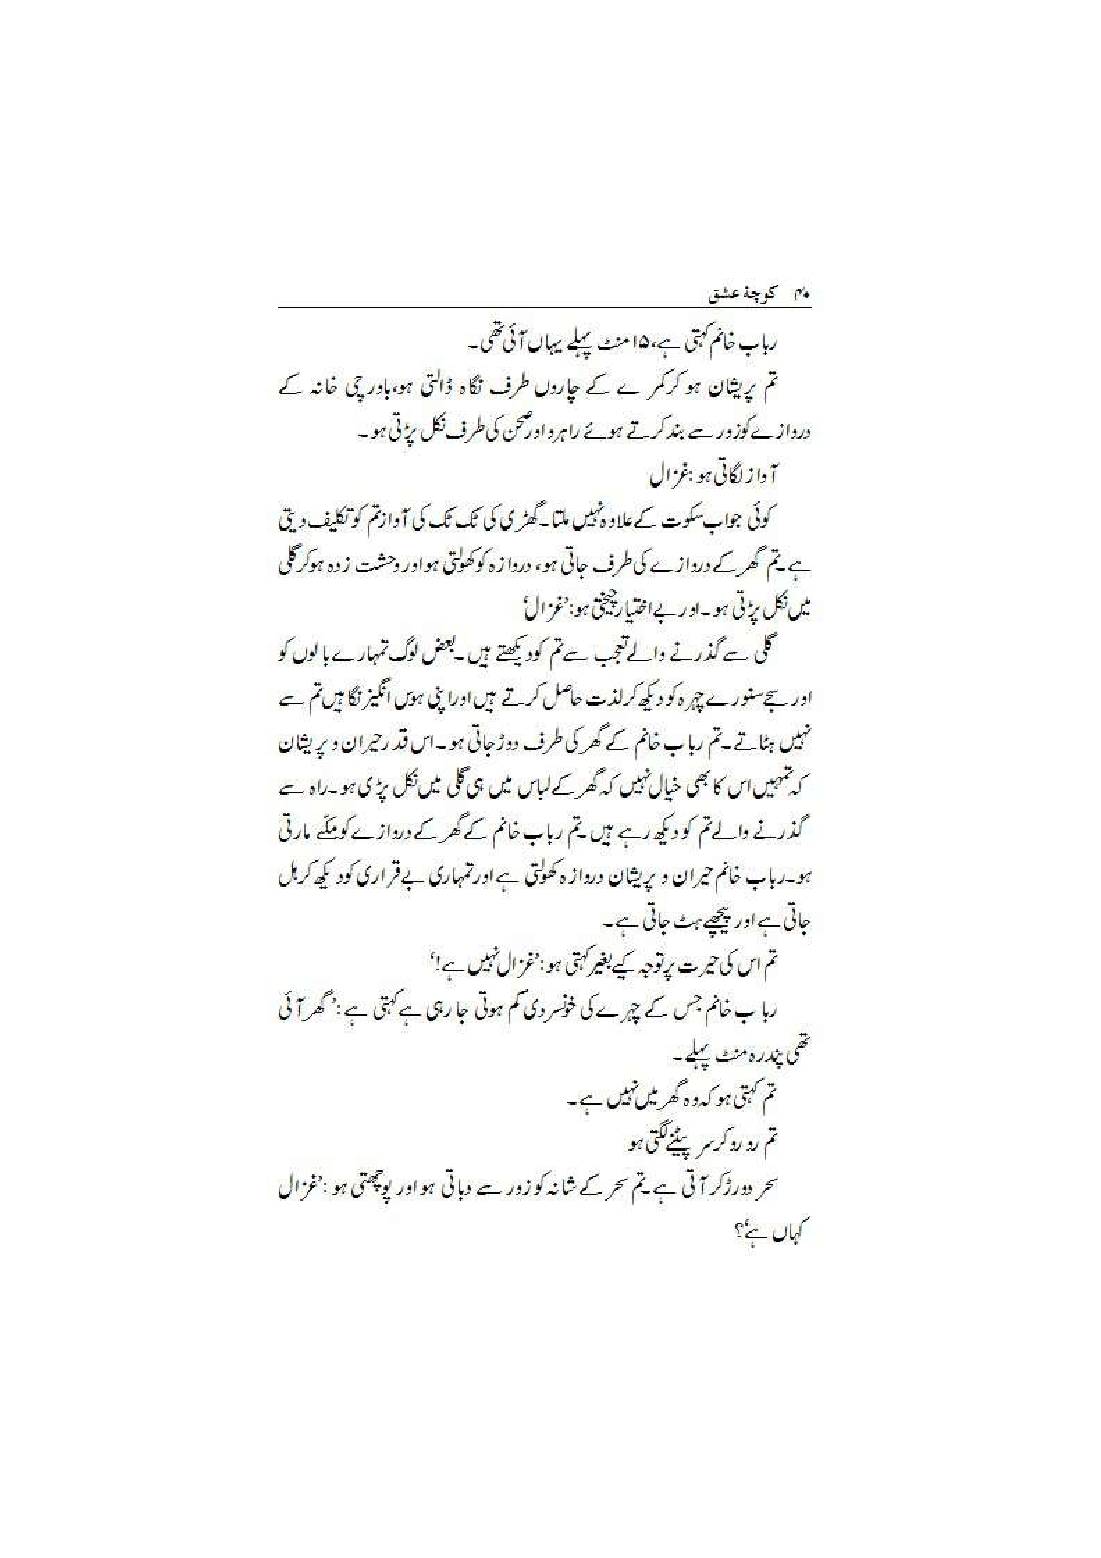 ۴۰ کوچۂ عشق
رباب خانم کہتی ہے، ۱۵ منٹ پہلے یہاں آئی تھی۔
تم پریشان ہو کر کمرے کے چاروں طرف نگاہ ڈالتی ہو، باورچی خانہ کے
دروازے کو زور سے بند کرتے ہوئے راہرو اور صحن کی طرف نکل پڑتی ہو۔
آواز لگاتی ہو: غزال
کوئی جواب سکوت کے علاوہ نہیں ملتا۔ گھڑی کی ٹک ٹک کی آواز تم کو تکلیف دیتی
ہے۔ تم گھر کے دروازے کی طرف جاتی ہو، دروازہ کو کھولتی ہو اور وحشت زدہ ہو کر گلی
میں نکل پڑتی ہو۔ اور بے اختیار چیختی ہو: ’غزال‘
گلی سے گذرنے والے تعجب سے تم کو دیکھتے ہیں۔ بعض لوگ تمہارے بالوں کو
اور سجے سنورے چہرہ کو دیکھ کر لذت حاصل کرتے ہیں اور اپنی ہوس انگیز نگاہیں تم سے
نہیں ہٹاتے۔ تم رباب خانم کے گھر کی طرف دوڑ جاتی ہو۔ اس قدر حیران و پریشان
کہ تمہیں اس کا بھی خیال نہیں کہ گھر کے لباس میں ہی گلی میں نکل پڑی ہو۔ راہ سے
گذرنے والے تم کو دیکھ رہے ہیں۔ تم رباب خانم کے گھر کے دروازے کو مکے مارتی
ہو۔ رباب خانم حیران و پریشان دروازہ کھولتی ہے اور تمہاری بے قراری کو دیکھ کر ہل
جاتی ہے اور پیچھے ہٹ جاتی ہے۔
تم اس کی حیرت پر توجہ کیے بغیر کہتی ہو: ’غزال نہیں ہے!‘
رباب خانم جس کے چہرے کی خونسردی کم ہوتی جا رہی ہے کہتی ہے: ’گھر آئی
تھی پندرہ منٹ پہلے۔
تم کہتی ہو کہ وہ گھر میں نہیں ہے۔
تم رو رو کر سر پیٹنے لگتی ہو
سحر دورڑ کر آتی ہے۔ تم سحر کے شانہ کو زور سے دباتی ہو اور پوچھتی ہو: ’غزال
کہاں ہے‘؟